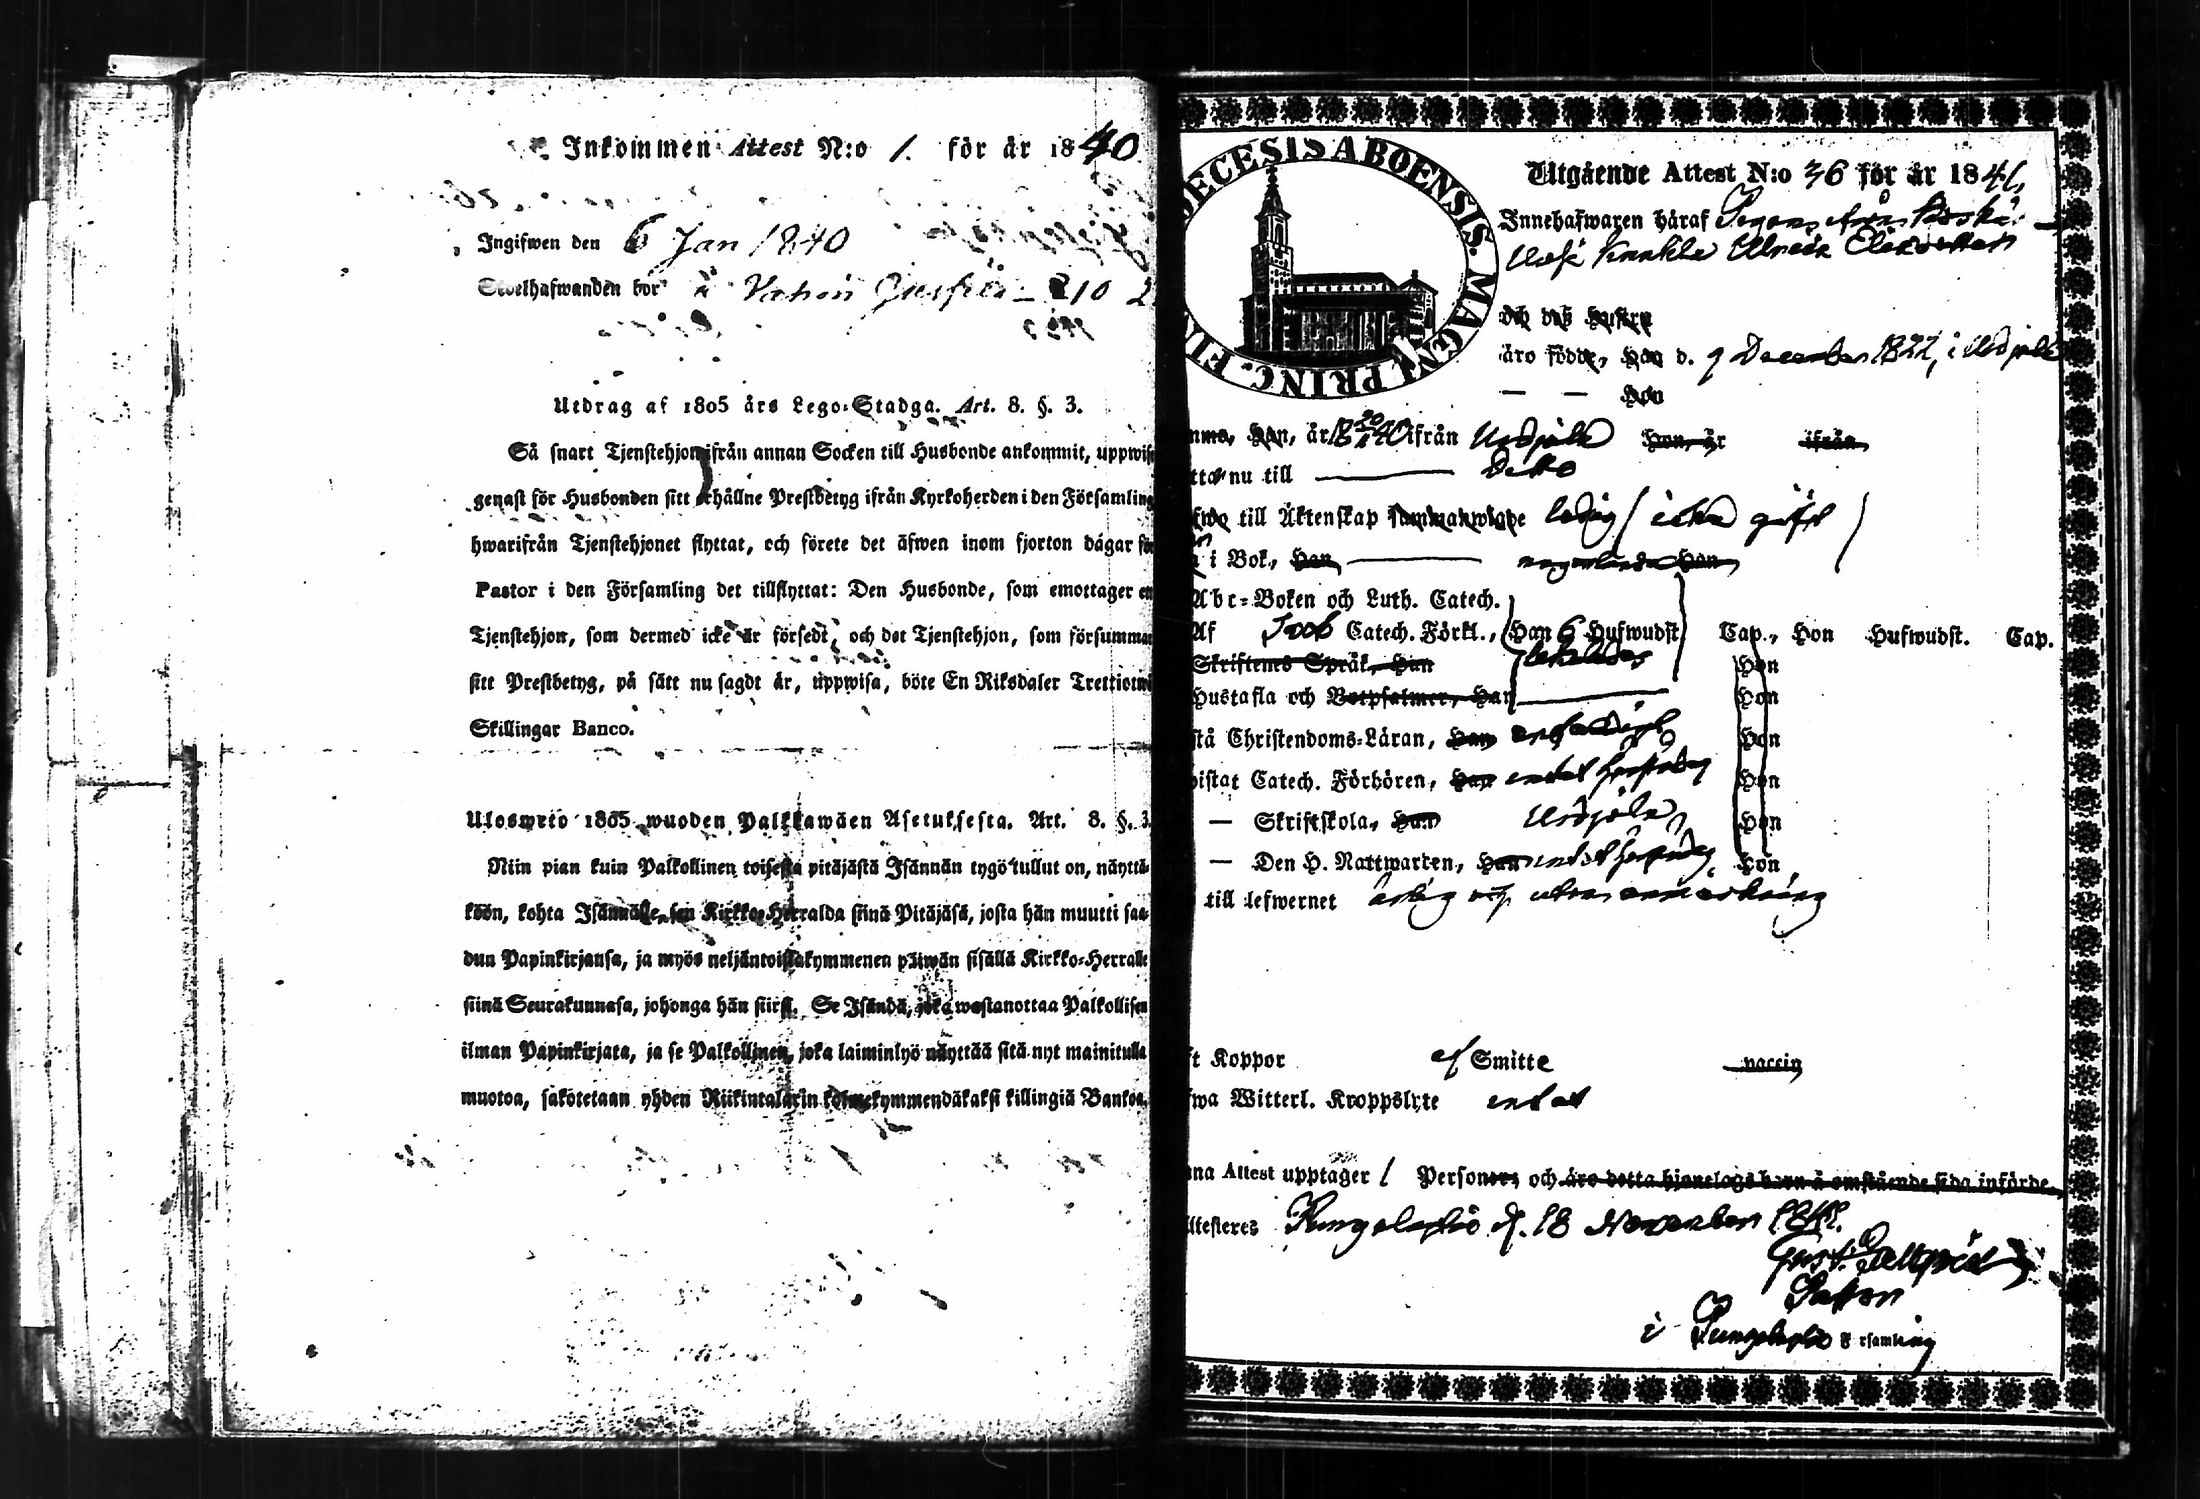 Inkommen Attest N:o 1. för år 1840
Ingifwen den 6 Jan 1840
bor
Utdrag af 1805 års Lego-Stadga. Art. 8. §. 3.
Så snart Tjenstehjon ifrån annan Socken till Husbonde ankommit, uppwise
genast för Husbonden sitt erhållne Prestbetyg ifrån Kyrkoherden i den Församling
hwarifrån Tjenstehjonet flyttat, och förete det äfwen inom fjorton dagar för
Pastor i den Församling det tillflyttat: Den Husbonde, som emottager en
Tjenstehjon, som dermed icke är försedt, och det Tjenstehjon, som försummar
sitt Prestbetyg, på sätt nu sagdt är, uppwisa, böte En Riksdaler Trettiotwå
Skillingar Banco.
Ulosweto 1805 wuoden Palkkawäen Asetuksesta. Art. 8. §. 3.
Niin pian kuin Palkollinen toisesta pitäjästä Isännän tygö tullut on, näyttä-
köön, kohta Isännälle, sen Kirkko-Herralda siinä Pitäjäsä, josta hän muutti saa-
dun Papinkirjansa, ja myös neljäntoistakymmenen päiwän sisällä Kirkko-Herralle
siinä Seurakunnasa, johonga hän siirsi. Se Isändä, joka wastanottaa Palkollisen
ilman Papinkirjata, ja se Palkollinen, joka laiminlyö näyttää sitä nyt mainitulla
muotoa, sakotetaan yhden Riikintalarin kolmekymmendäkaksi killingiä Bankoa.
DECESIS ABOENSIS. MAGNI PRINC. FIN
Utgående Attest N:o 36 för år 1841.
Innehafwaren häraf
Ulrica
och des hustru
äro födde, han d. 9 December 1822, i Urdjala
— — hon
han, är ifrån Urdjala hon, är ifrån
nu till — Ditto
till Äktenskap sammanwigde ledig (icke gift)
i Bok, han — hon
Abc-Boken och Luth. Catech.
Af Catech. Förkl., Han 6 Hufwudst. Cap., Hon Hufwudst. Cap.
Skriftenes Språk, han Hon
Hustafla och Botpsalmer, Han — Hon
Christendoms-Läran, han Hon
Catech. Förhören, han Hon
— Skriftskola, han Urdjala Hon
— Den H. Nattwarden, han Hon
till lefwernet ärlig och utan anmärkning
Koppor af Smitte vaccin
Witterl. Kroppslyte intet
Attest upptager 1 Personer, och äro detta hjonelags barn å omstående sida införde.
18 November 1841.
Pastor
i församling